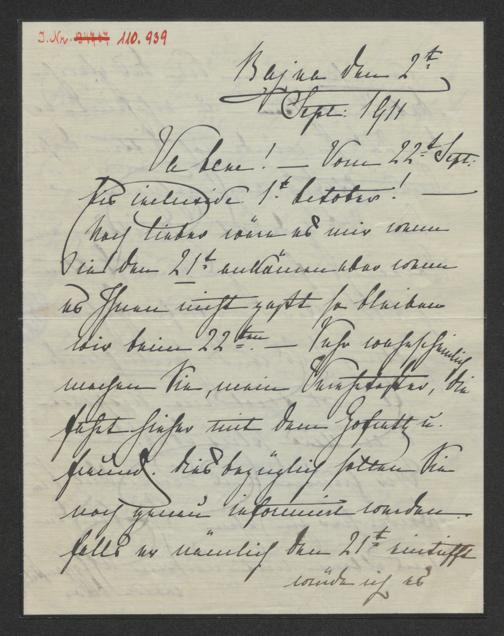 I.Nr. 110.939
Bajna den 2ᵗ
Sept: 1911
Va bene! — Vom 22ᵗ Sept:
bis inclusive 1ᵗ October! —
Noch lieber wäre es mir wenn
Sie den 21ᵗ ankämen aber wenn
es Ihnen nicht paßt so bleiben
wir beim 22ᵗᵉⁿ. — Sehr wahrscheinlich
machen Sie, mein Verehrtester, die
Fahrt hieher mit dem
Freund. Diesbezüglich sollen Sie
noch genau informiert werden.
Falls er nämlich den 21ᵗ eintrifft
würde ich es